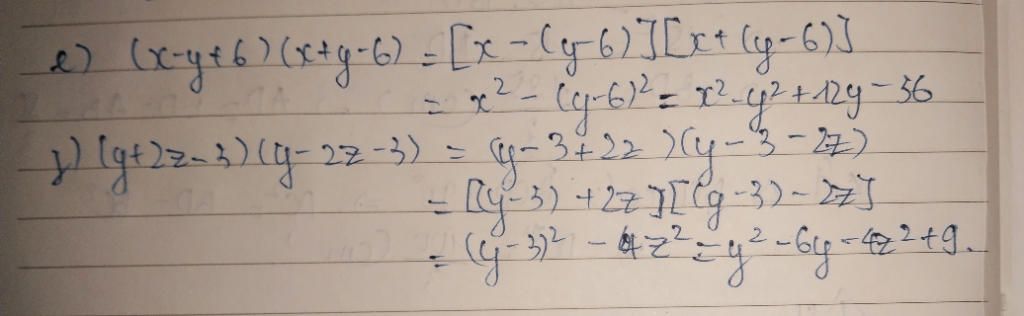 e) (x-y+6)(x+y-6) = [x - (y-6)][x+(y-6)]
= x² - (y-6)² = x² - y² + 12y - 36
f) (y+2z-3)(y-2z-3) = (y-3+2z)(y-3-2z)
= [(y-3)+2z][(y-3)-2z]
= (y-3)² - 4z² = y² - 6y - 4z² + 9.